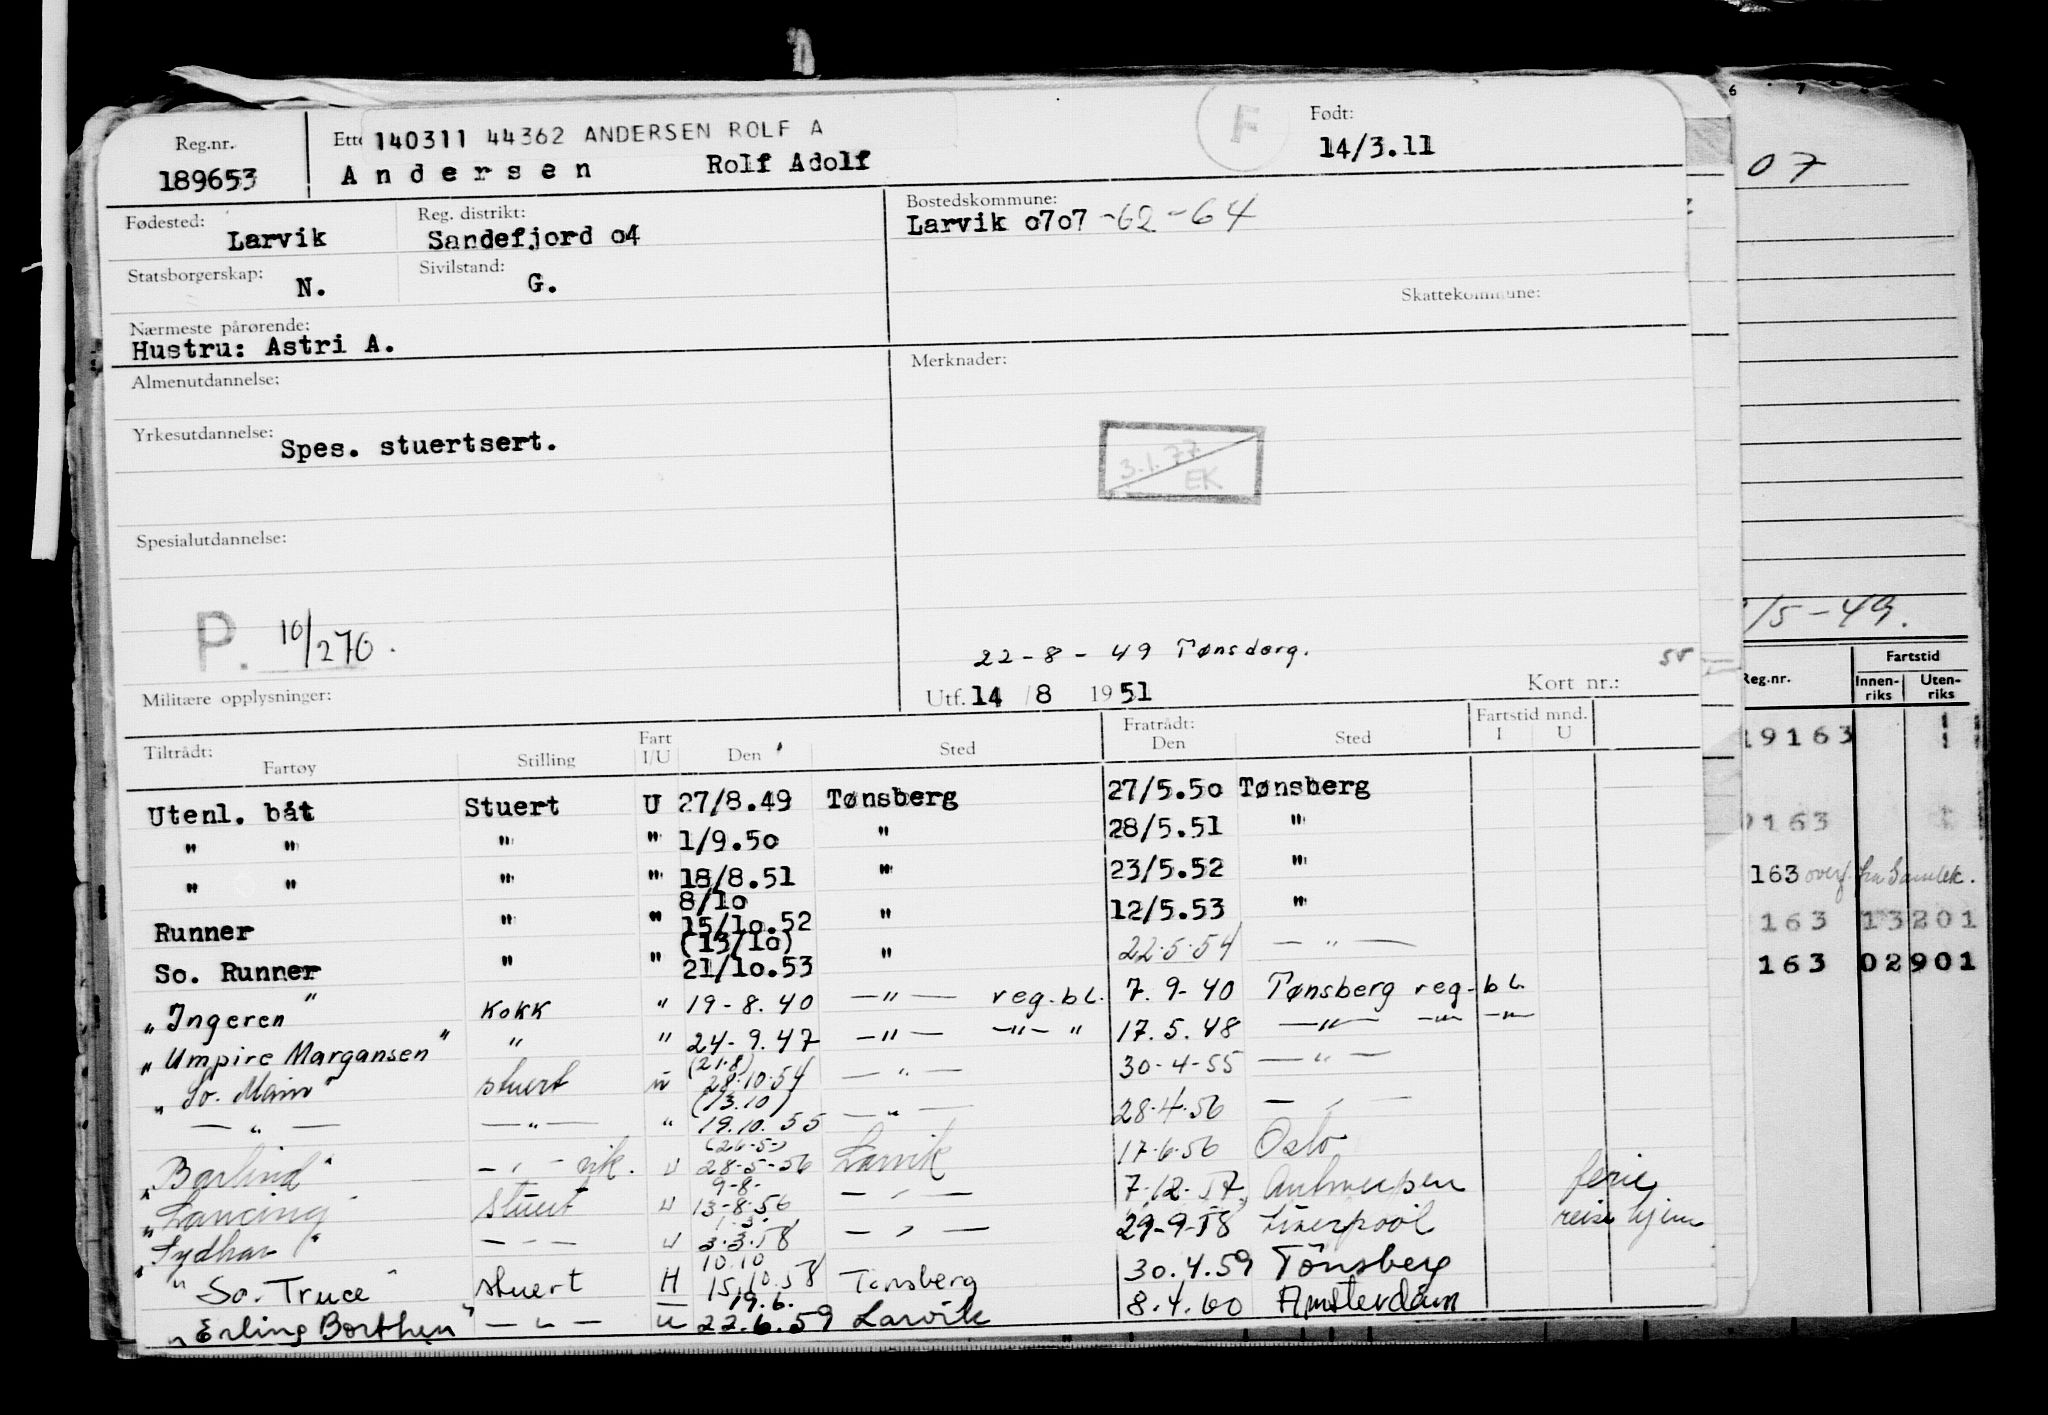 Reg.nr. Ette 140311 44362 ANDERSEN ROLF A F Født:
189653 Andersen Rolf Adolf 14/3.11
Fødested: Larvik Reg. distrikt: Sandefjord o4 Bostedskommune: Larvik o7o7 -62-64
Statsborgerskap: N. Sivilstand: G.
Skattekommune:
Nærmeste pårørende:
Hustru: Astri A.
Almenutdannelse: Merknader:
Yrkesutdannelse: Spes. stuertsert.
3.1.77 EK
Spesialutdannelse:
P. 10/270.
22-8-49 Tønsderg. 55
Militære opplysninger: Utf. 14/8 1951 Kort nr.:
Tiltrådt: Fratrådt: Fartstid mnd.
Fartøy Stilling Fart I/U Den Sted Den Sted I U
Utenl. båt Stuert U 27/8.49 Tønsberg 27/5.50 Tønsberg
" " " " 1/9.50 " 28/5.51 "
" " " " 18/8.51 " 23/5.52 "
8/10
Runner " " 15/10.52 " 12/5.53 "
(13/10)
So. Runner " " 21/10.53 " 22.5.54 — " —
"Ingeren" Kokk " 19-8.40 —"— reg.bl. 7.9-40 Tønsberg reg.bl.
"Umpire Margansen" " " 24-9.47 —"— —"— " 17.5.48 —"— —"— —"—
(21.8)
"So. Main" stuert u 28.10.54 — " — 30-4-55 — " —
(13.10)
— " — — " — " 19.10.55 — " — 28.4.56 — " —
(26-5-)
"Barlind" — " — vik. U 28-5-56 Larvik 17.6.56 Oslo
9-8-
"Lancing" stuert U 13-8-56 — " — 7.12.57 Antwerpen ferie
1.3.
"Sydhav" — " — U 3.3.58 — " — 29-9-58 Liverpool reise hjem
10.10
"So. Truce" stuert H 15.10.58 Tønsberg 30.4.59 Tönsberg
19.6.
"Erling Borthen" — " — u 22.6.59 Larvik 8.4.60 Amsterdam
6 7
07
/5-49.
Reg.nr. Fartstid
Innen-riks Uten-riks
19163
9163
163 overf. fra Samlek.
163 13201
163 02901